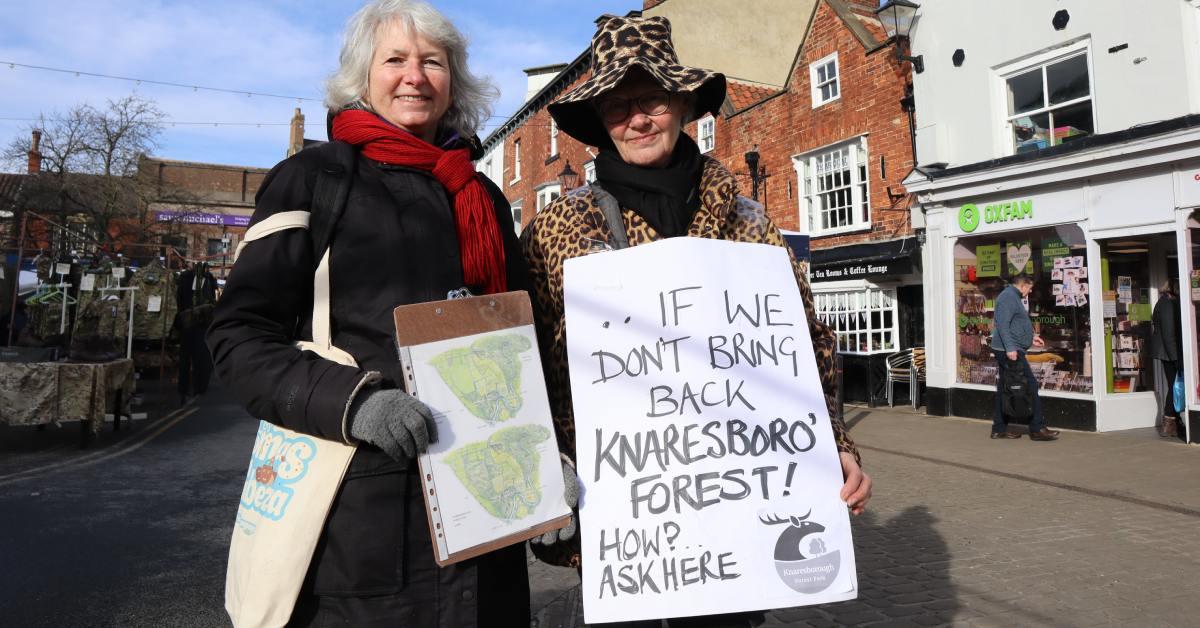 saint michael's
OXFAM
Tea Rooms & Coffee Lounge
.. IF WE
DON'T BRING
BACK
KNARESBORO'
FOREST!
HOW?..
ASK HERE
Knaresborough
Forest Park